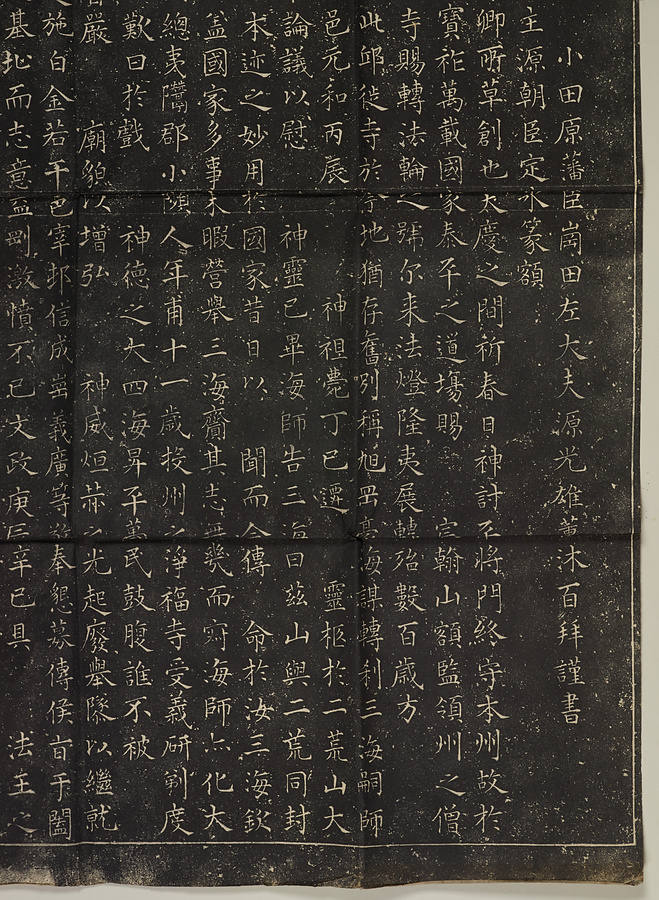 小田原藩臣岡田左大夫源光雄薫沐百拜謹書
主源朝臣定永篆額
卿所草創也大慶之間祈春日神討不將門終守本州故於
寶祚萬載國家泰平之道場賜 宸翰山額監領州之僧
寺賜轉法輪之號尔来法燈隆夷展轉殆數百歳方
此邱徙寺於今地猶存舊列稱旭 海謀轉利三海嗣師
邑元和丙辰 神祖薨丁巳遷 靈柩於二荒山大
論議以慰 神靈已畢海師告三海曰茲山與二荒同封
本迹之妙用於國家昔日以 聞而今傳 命於汝三海欽
盖國家多事未暇營舉三海齎其志無幾而寂海師亦化大
總夷 郡小 人年甫十一歳投州之淨福寺受義研剃度
歎曰於戲 神德之大四海昇平萬民鼓腹誰不被
嚴 廟貌以增弘 神威烜赫之光起廢舉隊以繼就
施白金若干邑宰 信成 義廣等 奉懇募傳侯旨于闔
基址而志意益剛激憤不已文政庚辰辛巳具 法主之